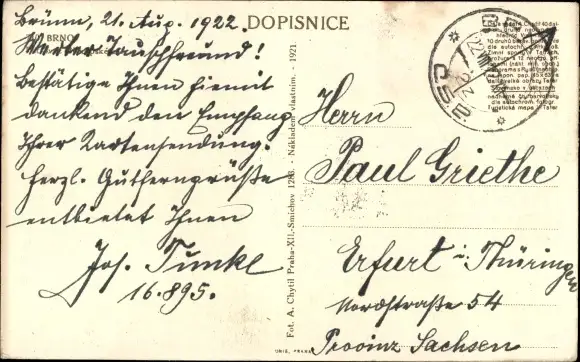 Brünn, 21. Aug. 1922.
DOPISNICE
BRNO
Werter Tauschfreund!
Bestätige Ihnen hiemit
dankend den Empfang
Ihrer Kartensendung.
Herzl. Gutferngrüße
entbietet Ihnen
Jos. Tunkl
16.895.
Fot. A. Chytil Praha-XII.-Smíchov 1283. - Nákladem vlastním. - 1921.
UNIE, PRAHA
BRNO
ČSR
Herrn
Paul Griethe
Erfurt i. Thüringen
Nordstraße 54
Provinz Sachsen